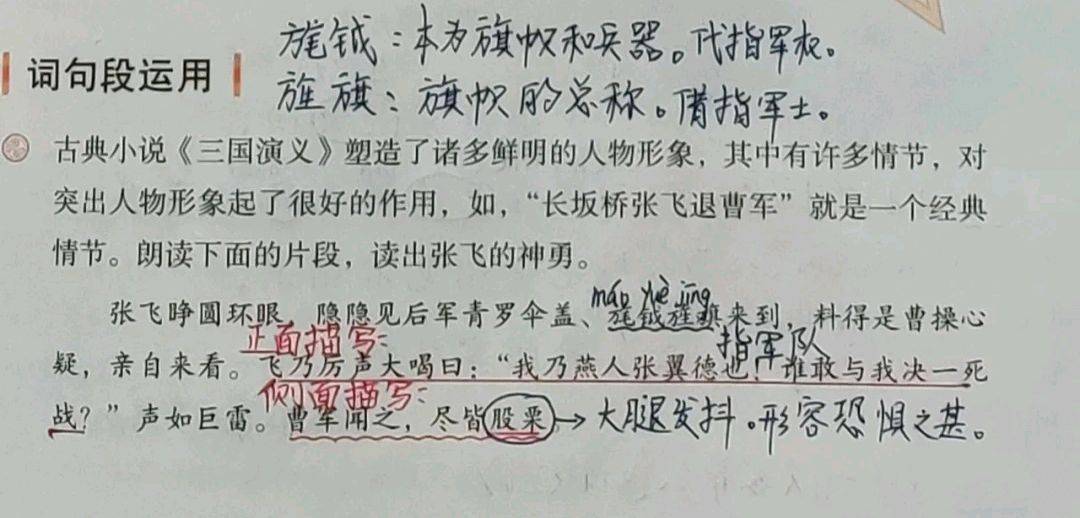 旄钺：本为旗帜和兵器。代指军权。
词句段运用
旌旗：旗帜的总称。借指军士。
古典小说《三国演义》塑造了诸多鲜明的人物形象，其中有许多情节，对
突出人物形象起了很好的作用，如，“长坂桥张飞退曹军”就是一个经典
情节。朗读下面的片段，读出张飞的神勇。
máo yuè jīng
张飞睁圆环眼，隐隐见后军青罗伞盖、旄钺旌旗来到，料得是曹操心
正面描写：
指军队
疑，亲自来看。飞乃厉声大喝曰：“我乃燕人张翼德也！谁敢与我决一死
侧面描写：
战？”声如巨雷。曹军闻之，尽皆股栗→大腿发抖。形容恐惧之甚。